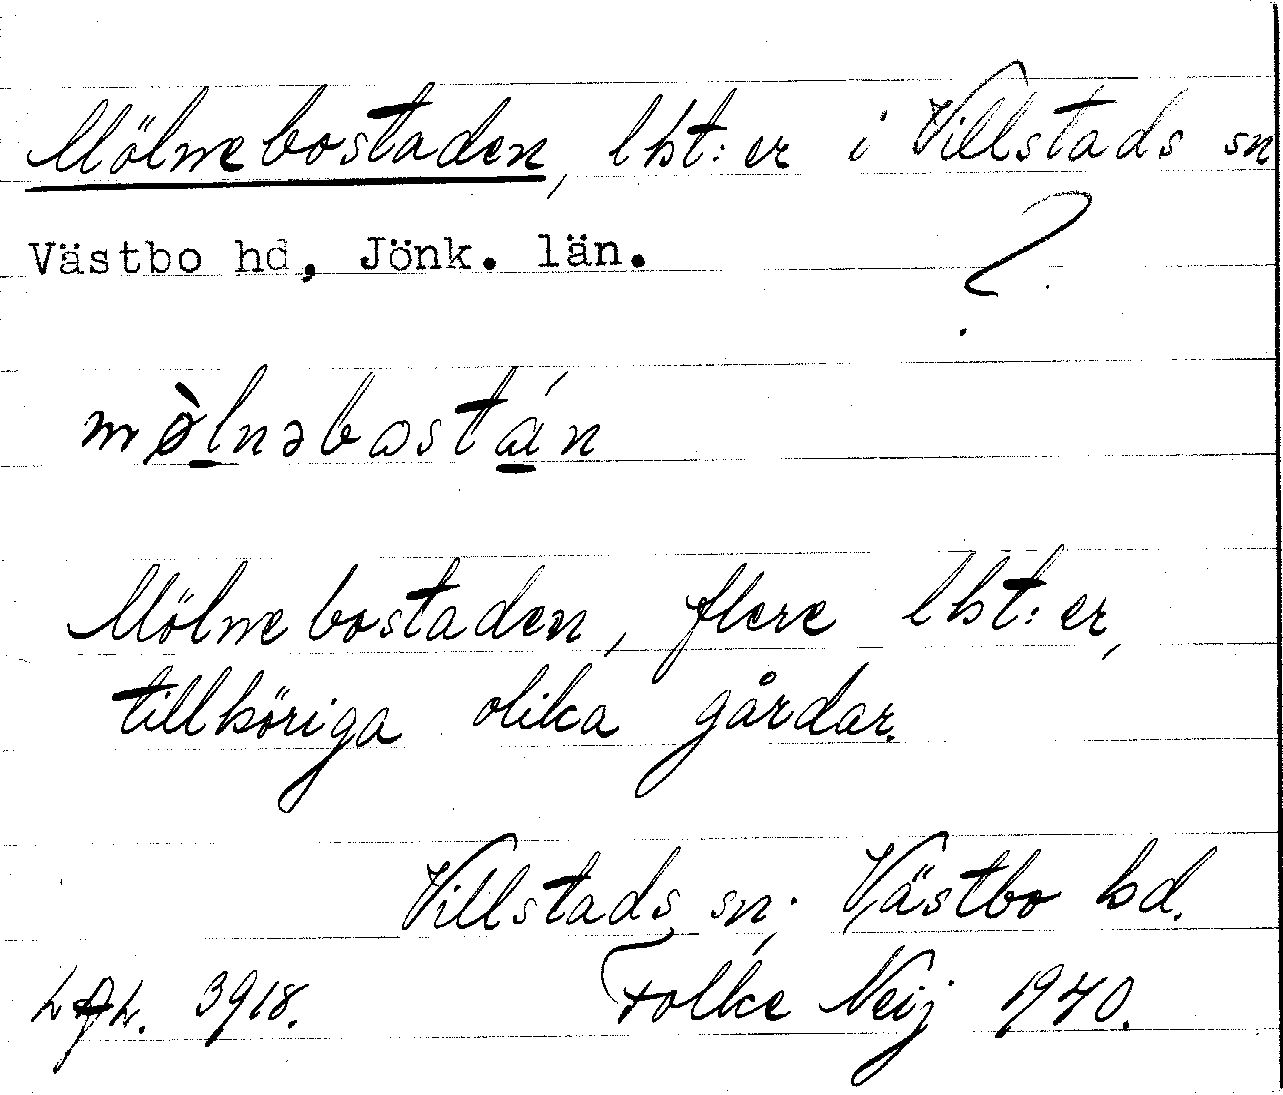 Mölnebostaden, lht:er i Villstads sn
Västbo hd, Jönk. län.
?
mø̀lnəbɷstán
Mölnebostaden, flere lht:er,
tillhöriga olika gårdar.
Villstads sn. Västbo hd.
3918. Folke Neij 1940.